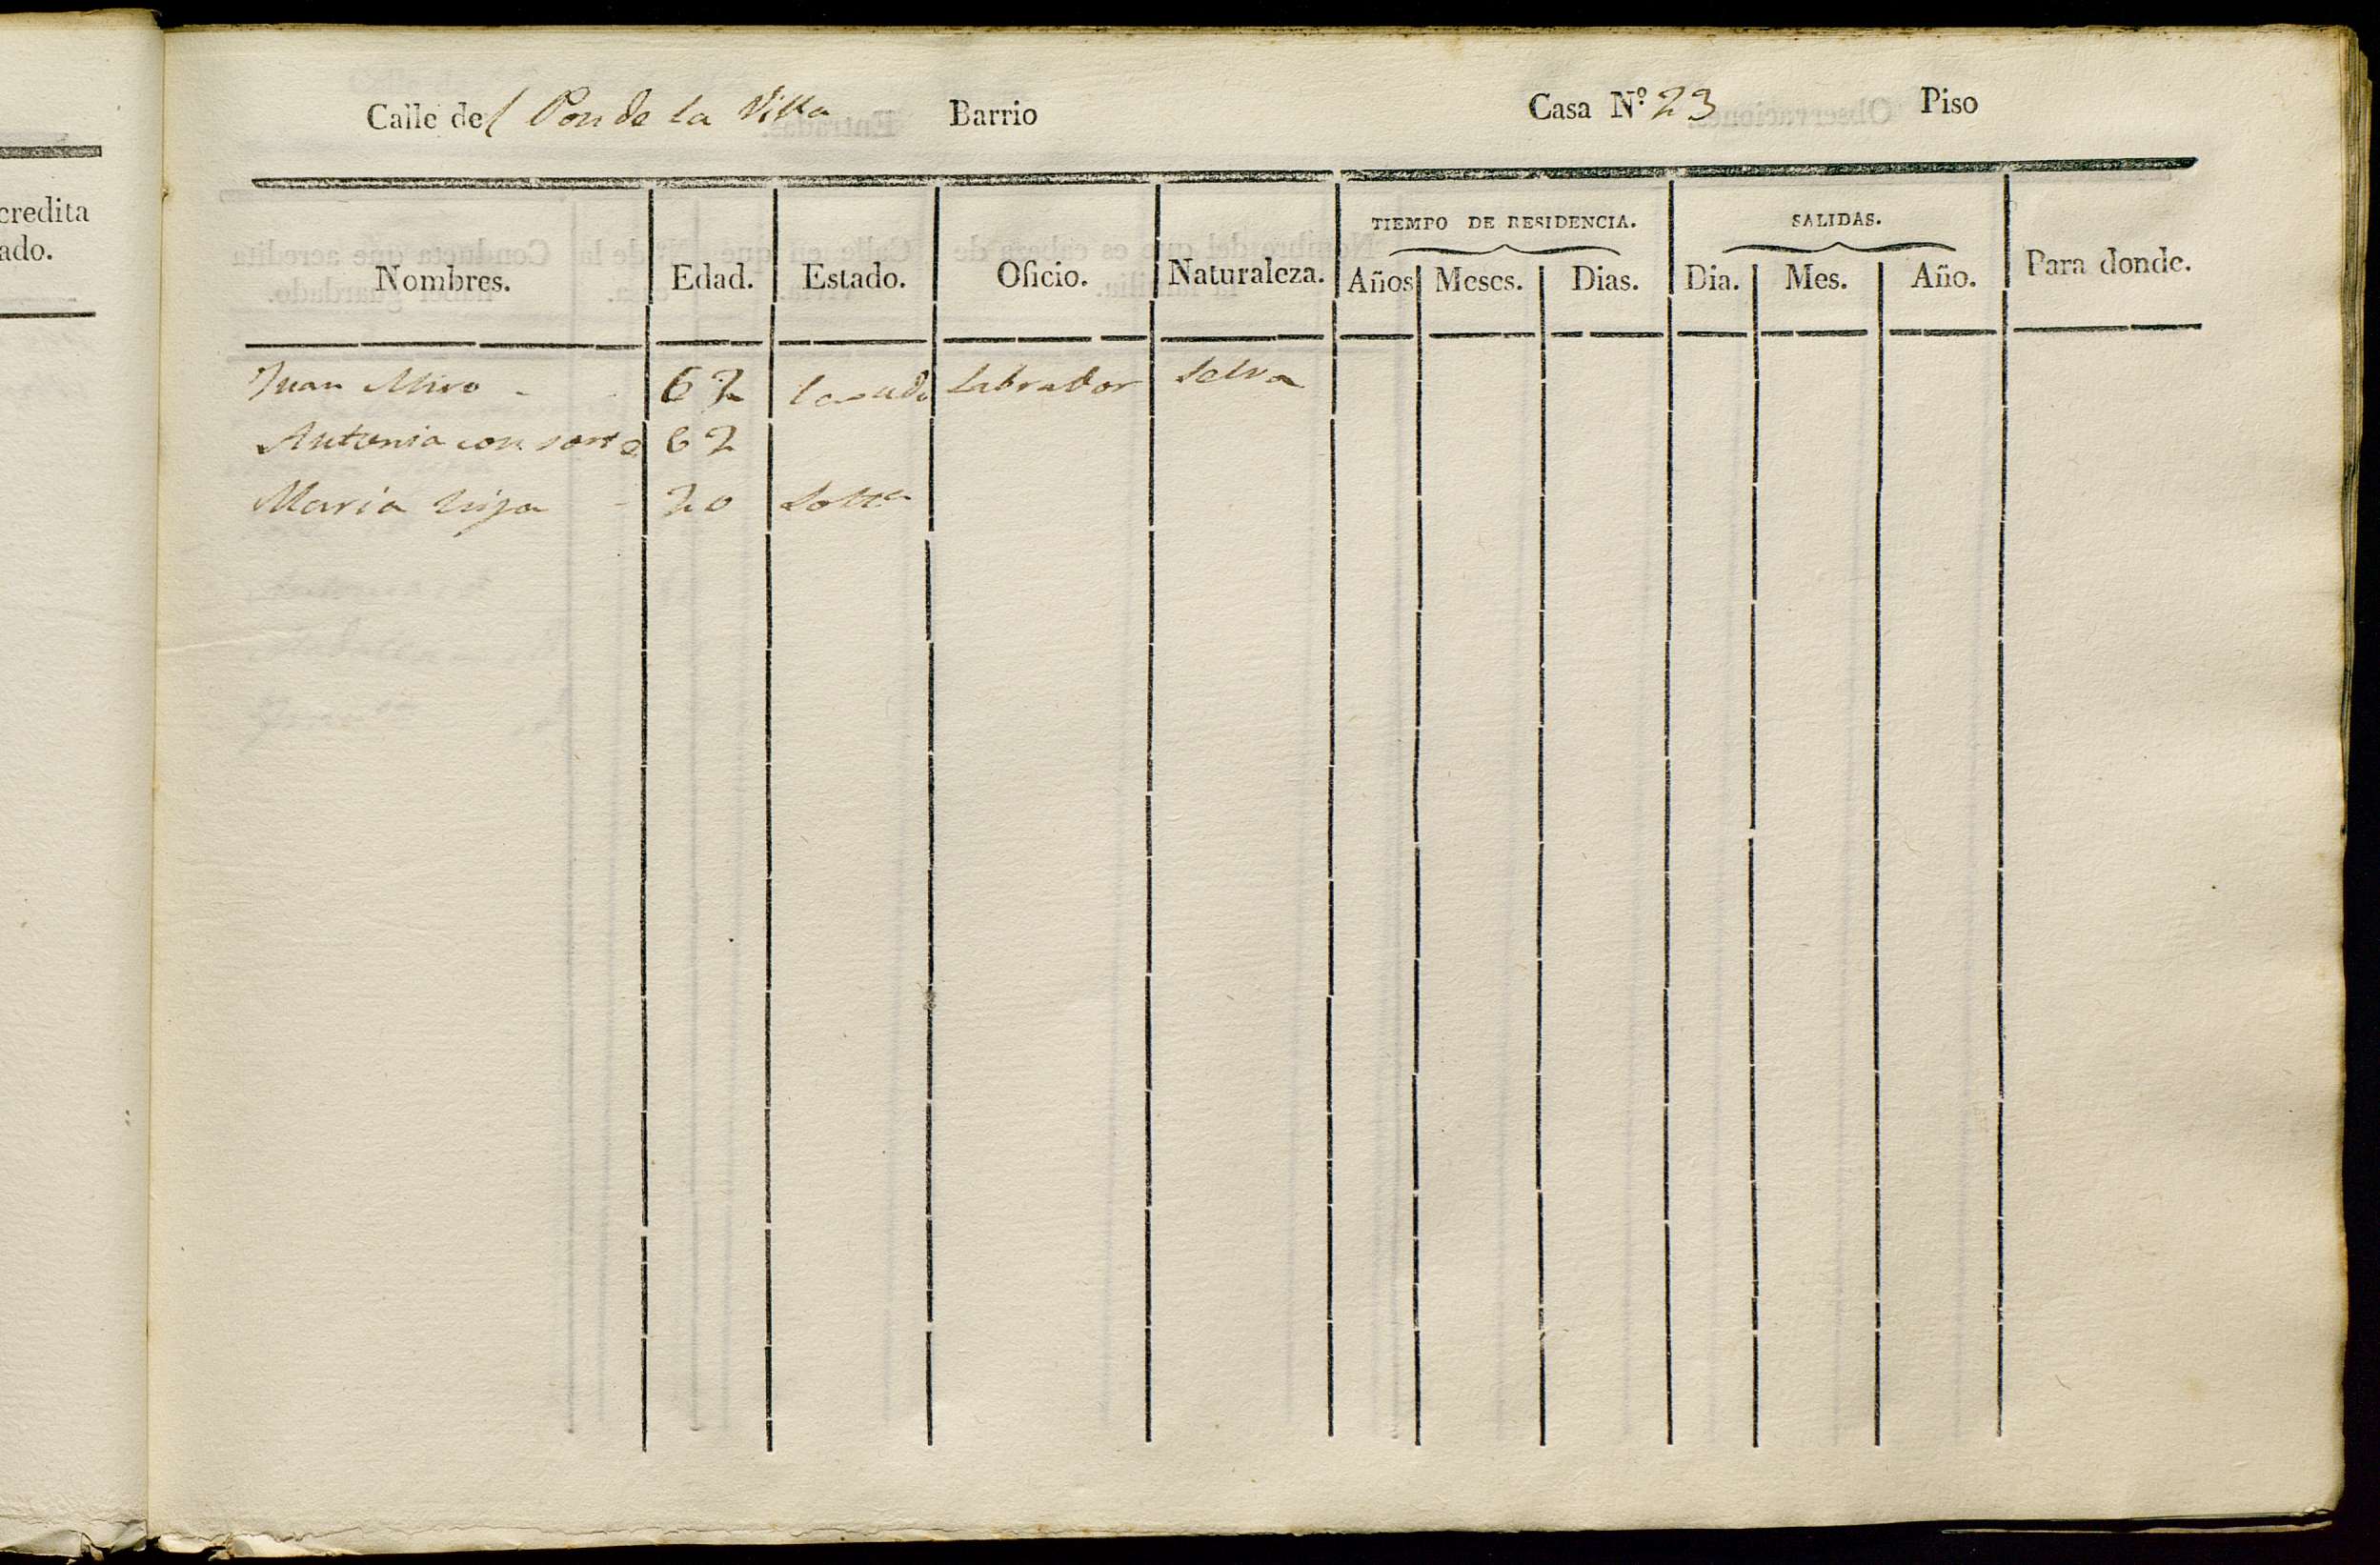 credita
ado.
Calle del Pou de la Villa Barrio Casa Nº 23 Piso
TIEMPO DE RESIDENCIA. SALIDAS.
Nombres. Edad. Estado. Oficio. Naturaleza. Años Meses. Dias. Dia. Mes. Año. Para donde.
Juan Miro - 62 Casado Labrador Selva
Antonia consorte 62
Maria hija - 20 Soltra